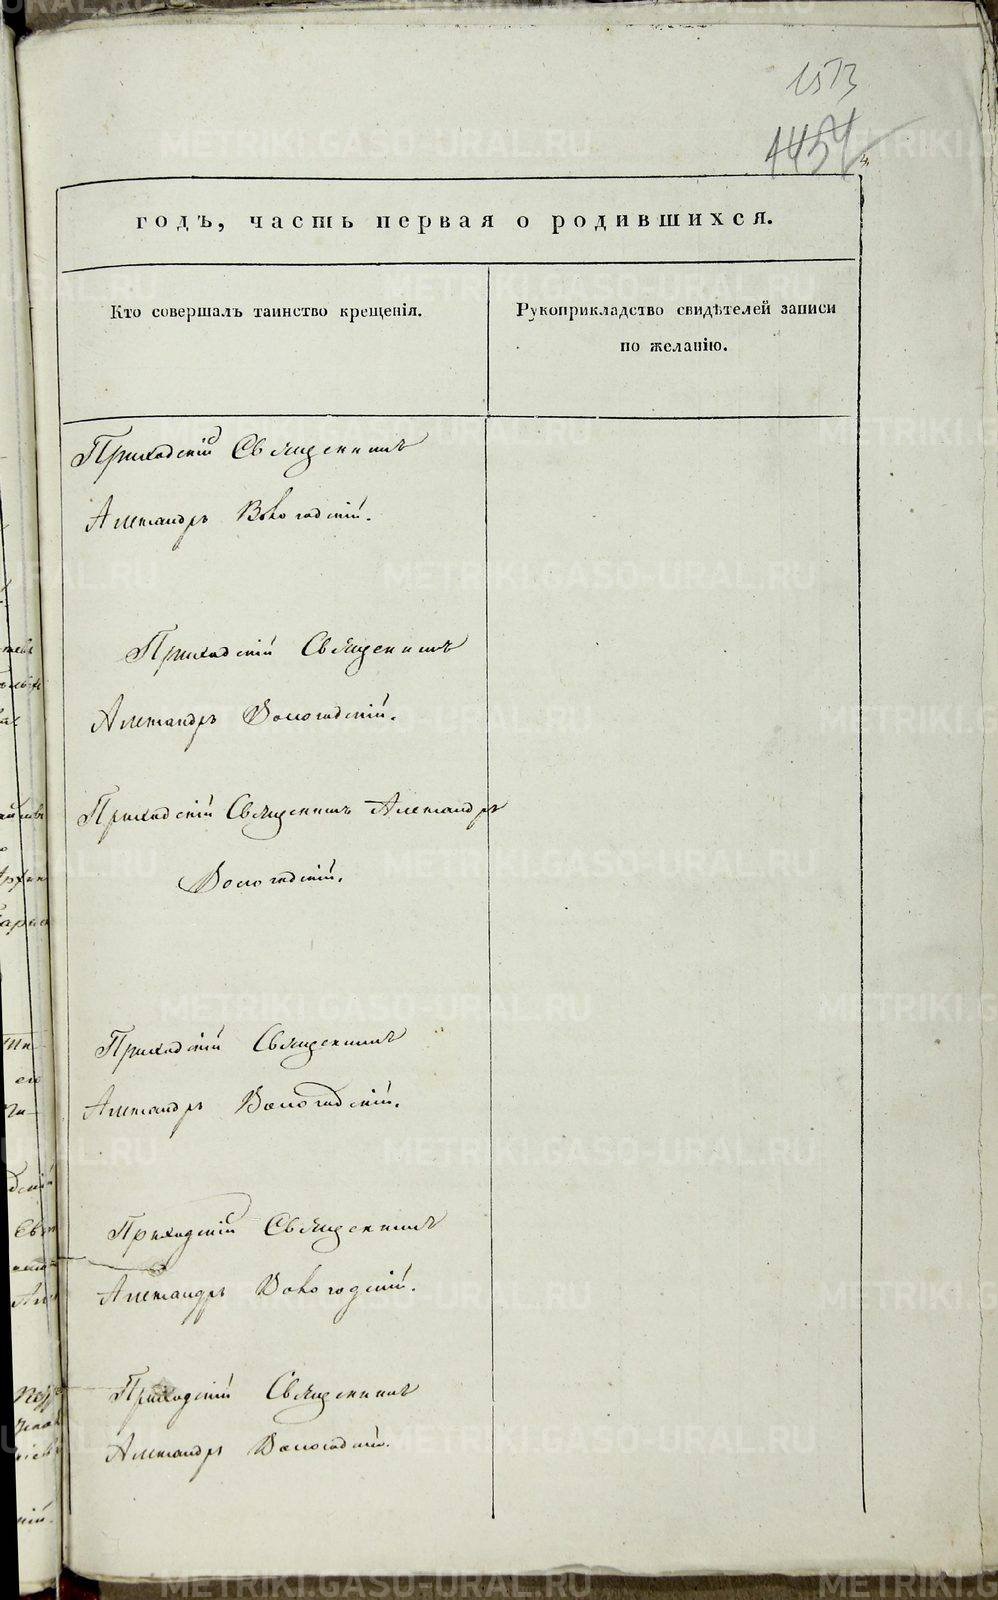 1573
1454
годъ, часть первая о родившихся.
Кто совершалъ таинство крещенія.
Рукоприкладство свидѣтелей записи
по желанію.
Приходскій Священникъ
Александръ Вологодскій.
Приходскій Священникъ
Александръ Вологодскій.
Приходскій Священникъ Александръ
Вологодскій.
Приходскій Священникъ
Александръ Вологодскій.
Приходскій Священникъ
Александръ Вологодскій.
Приходскій Священникъ
Александръ Вологодскій.
METRIKI.GASO-URAL.RU